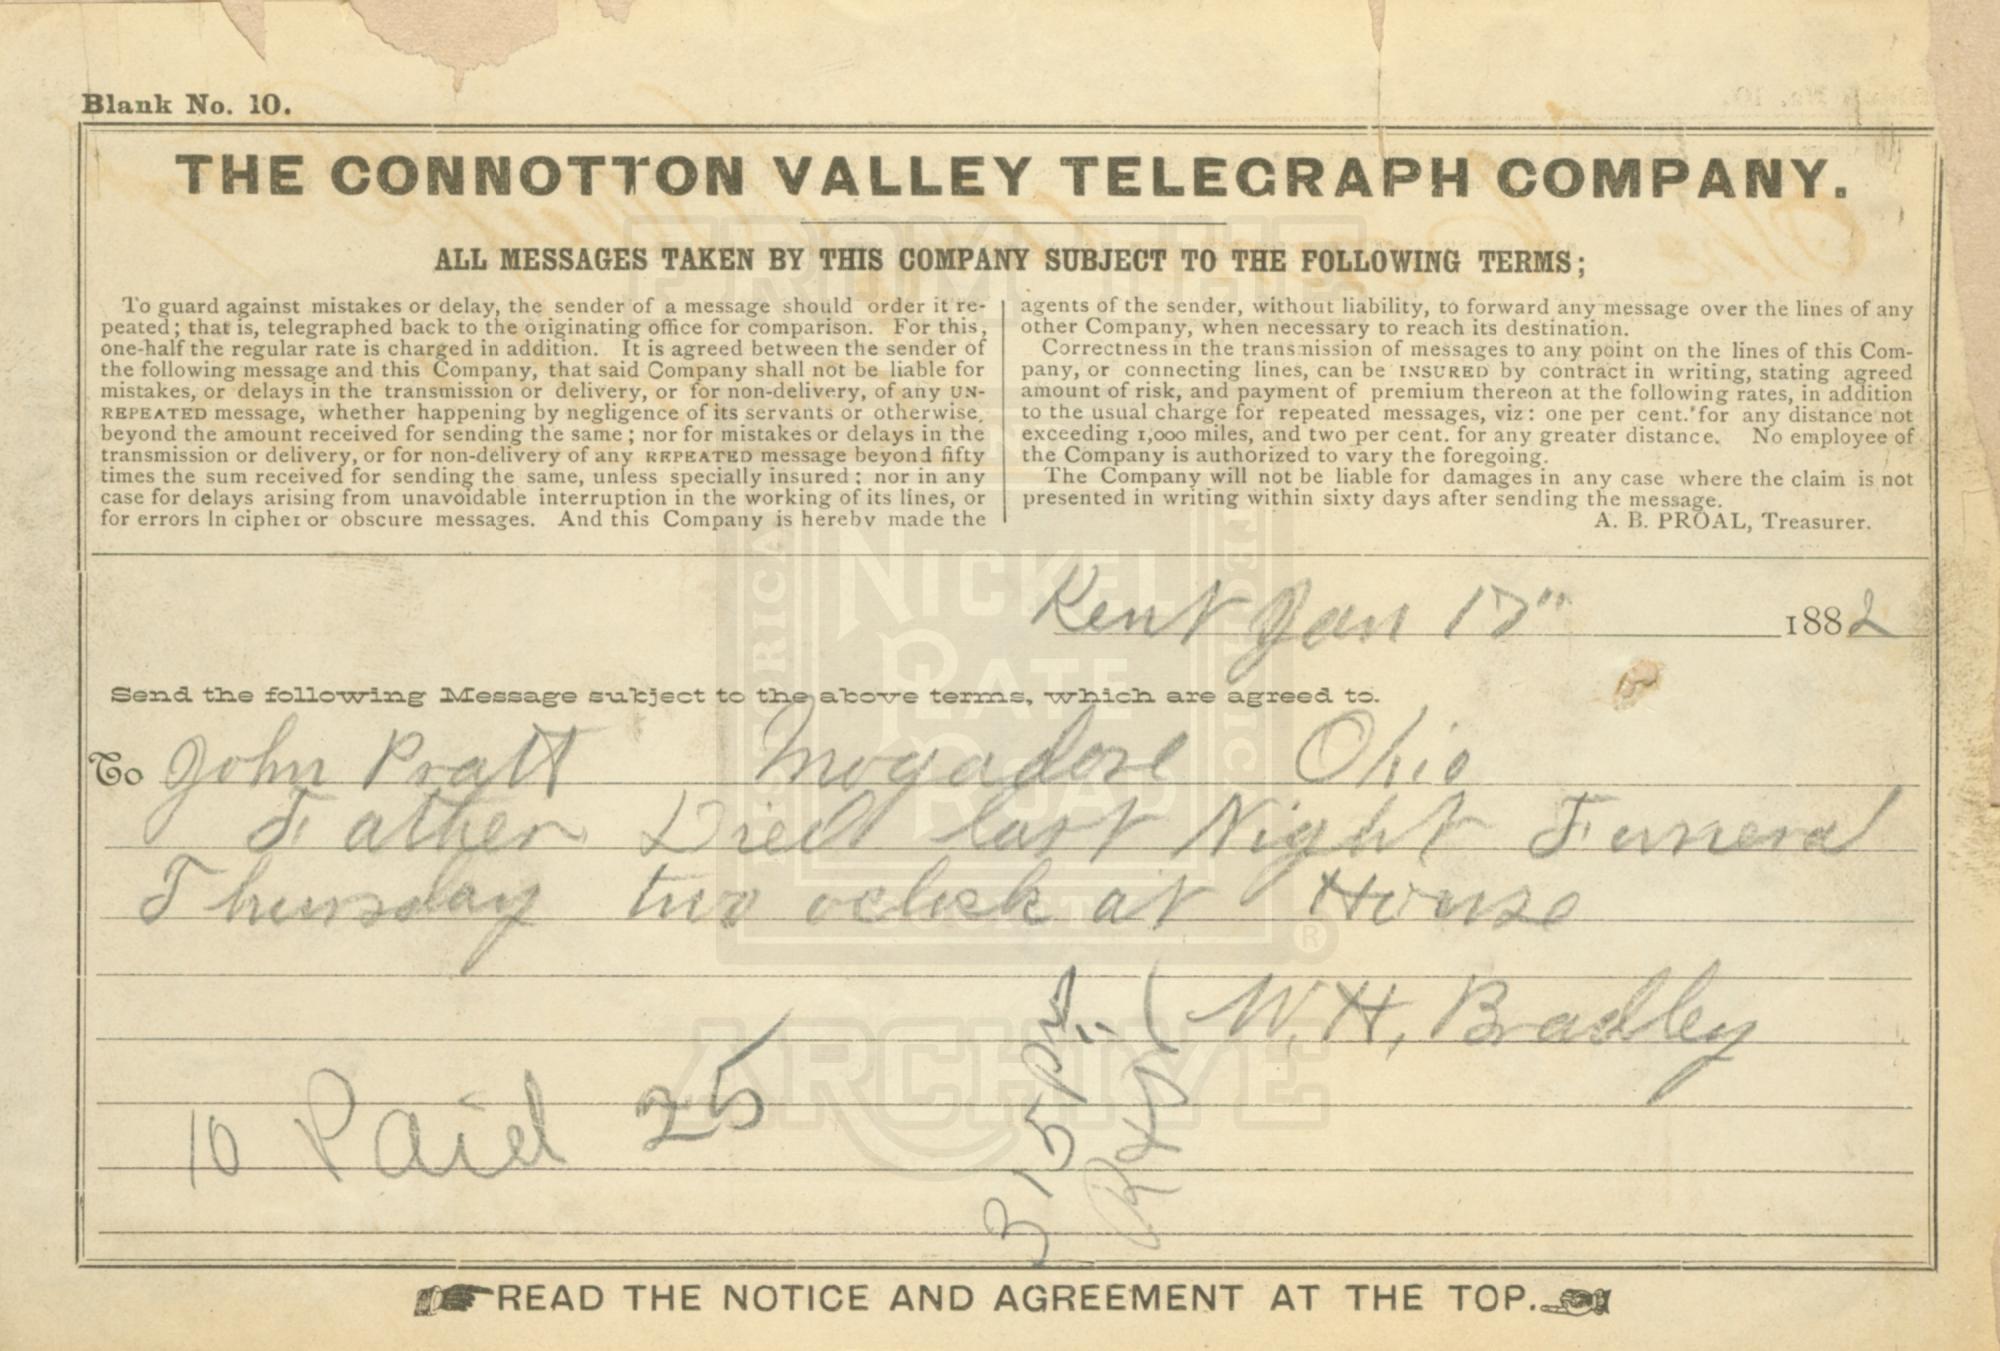 Blank No. 10.
THE CONNOTTON VALLEY TELEGRAPH COMPANY.
ALL MESSAGES TAKEN BY THIS COMPANY SUBJECT TO THE FOLLOWING TERMS;
To guard against mistakes or delay, the sender of a message should order it re-
peated; that is, telegraphed back to the originating office for comparison. For this,
one-half the regular rate is charged in addition. It is agreed between the sender of
the following message and this Company, that said Company shall not be liable for
mistakes, or delays in the transmission or delivery, or for non-delivery, of any UN-
REPEATED message, whether happening by negligence of its servants or otherwise,
beyond the amount received for sending the same; nor for mistakes or delays in the
transmission or delivery, or for non-delivery of any REPEATED message beyond fifty
times the sum received for sending the same, unless specially insured; nor in any
case for delays arising from unavoidable interruption in the working of its lines, or
for errors in cipher or obscure messages. And this Company is hereby made the
agents of the sender, without liability, to forward any message over the lines of any
other Company, when necessary to reach its destination.
Correctness in the transmission of messages to any point on the lines of this Com-
pany, or connecting lines, can be INSURED by contract in writing, stating agreed
amount of risk, and payment of premium thereon at the following rates, in addition
to the usual charge for repeated messages, viz: one per cent. for any distance not
exceeding 1,000 miles, and two per cent. for any greater distance. No employee of
the Company is authorized to vary the foregoing.
The Company will not be liable for damages in any case where the claim is not
presented in writing within sixty days after sending the message.
A. B. PROAL, Treasurer.
Kent Jan 17" 1882
Send the following Message subject to the above terms, which are agreed to.
To John Pratt Mogadore Ohio
Father Died last Night Funeral
Thursday two oclock at House
W. H. Bradley
10 Paid 25
315 PM
READ THE NOTICE AND AGREEMENT AT THE TOP.
FROM THE
HISTORICAL
TECHNICAL
NICKEL
PLATE
ROAD
SOCIETY
®
ARCHIVE